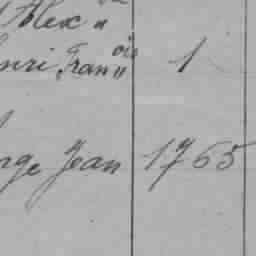 Alex "
enri Fran"ois 1
rge Jean 1765